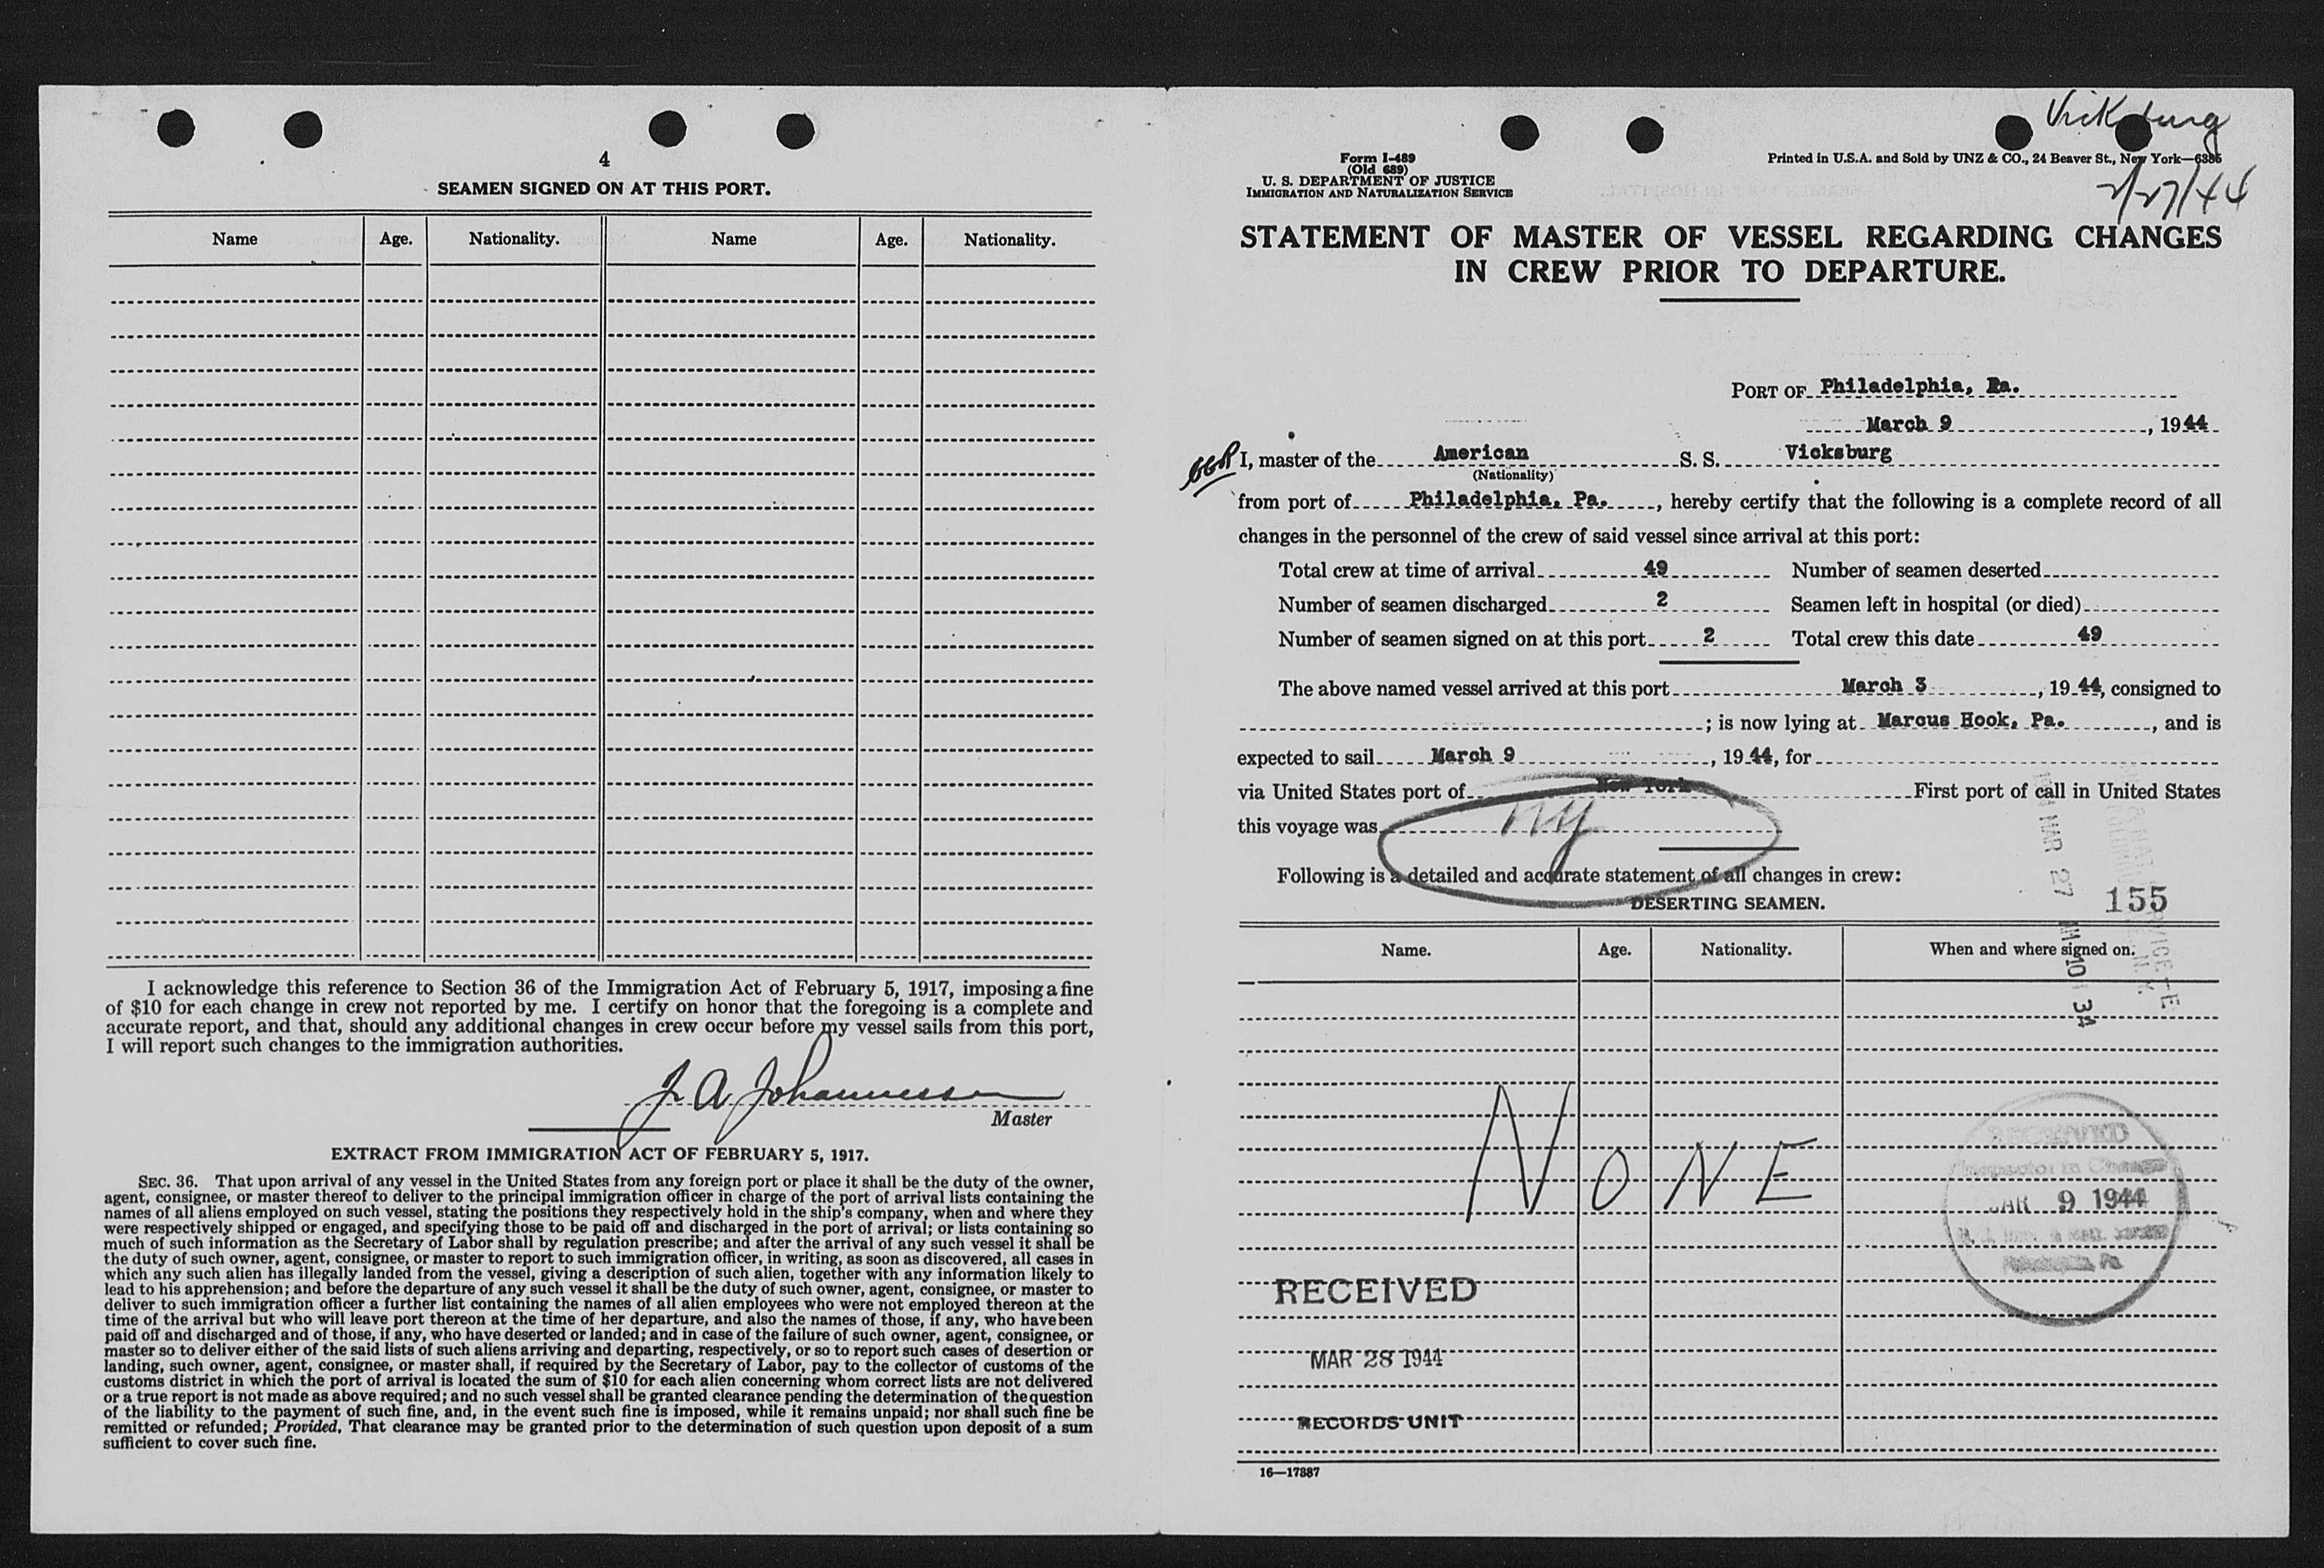 4
SEAMEN SIGNED ON AT THIS PORT.
Name Age. Nationality. Name Age. Nationality.
I acknowledge this reference to Section 36 of the Immigration Act of February 5, 1917, imposing a fine
of $10 for each change in crew not reported by me. I certify on honor that the foregoing is a complete and
accurate report, and that, should any additional changes in crew occur before my vessel sails from this port,
I will report such changes to the immigration authorities.
J. A. Johannessen
Master
EXTRACT FROM IMMIGRATION ACT OF FEBRUARY 5, 1917.
SEC. 36. That upon arrival of any vessel in the United States from any foreign port or place it shall be the duty of the owner,
agent, consignee, or master thereof to deliver to the principal immigration officer in charge of the port of arrival lists containing the
names of all aliens employed on such vessel, stating the positions they respectively hold in the ship's company, when and where they
were respectively shipped or engaged, and specifying those to be paid off and discharged in the port of arrival; or lists containing so
much of such information as the Secretary of Labor shall by regulation prescribe; and after the arrival of any such vessel it shall be
the duty of such owner, agent, consignee, or master to report to such immigration officer, in writing, as soon as discovered, all cases in
which any such alien has illegally landed from the vessel, giving a description of such alien, together with any information likely to
lead to his apprehension; and before the departure of any such vessel it shall be the duty of such owner, agent, consignee, or master to
deliver to such immigration officer a further list containing the names of all alien employees who were not employed thereon at the
time of the arrival but who will leave port thereon at the time of her departure, and also the names of those, if any, who have been
paid off and discharged and of those, if any, who have deserted or landed; and in case of the failure of such owner, agent, consignee, or
master so to deliver either of the said lists of such aliens arriving and departing, respectively, or so to report such cases of desertion or
landing, such owner, agent, consignee, or master shall, if required by the Secretary of Labor, pay to the collector of customs of the
customs district in which the port of arrival is located the sum of $10 for each alien concerning whom correct lists are not delivered
or a true report is not made as above required; and no such vessel shall be granted clearance pending the determination of the question
of the liability to the payment of such fine, and, in the event such fine is imposed, while it remains unpaid; nor shall such fine be
remitted or refunded; Provided, That clearance may be granted prior to the determination of such question upon deposit of a sum
sufficient to cover such fine.
Vicksburg
2/27/44
Form I-489
(Old 689)
U. S. DEPARTMENT OF JUSTICE
IMMIGRATION AND NATURALIZATION SERVICE
Printed in U.S.A. and Sold by UNZ & CO., 24 Beaver St., New York—6386
STATEMENT OF MASTER OF VESSEL REGARDING CHANGES
IN CREW PRIOR TO DEPARTURE.
PORT OF Philadelphia, Pa.
March 9, 1944
I, master of the American S. S. Vicksburg
(Nationality)
from port of Philadelphia, Pa., hereby certify that the following is a complete record of all
changes in the personnel of the crew of said vessel since arrival at this port:
Total crew at time of arrival 49 Number of seamen deserted
Number of seamen discharged 2 Seamen left in hospital (or died)
Number of seamen signed on at this port 2 Total crew this date 49
The above named vessel arrived at this port March 3, 1944, consigned to
; is now lying at Marcus Hook, Pa., and is
expected to sail March 9, 1944, for
via United States port of New York First port of call in United States
this voyage was NY
Following is a detailed and accurate statement of all changes in crew:
DESERTING SEAMEN.
155
MAR 27 AM 10 34
Name. Age. Nationality. When and where signed on.
NONE
RECEIVED
Inspector in Charge
MAR 9 1944
Philadelphia, Pa.
RECEIVED
MAR 28 1944
RECORDS UNIT
16—17387